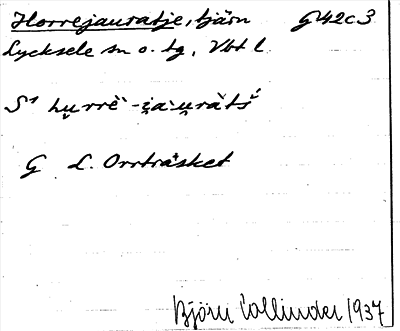 Horrejauratje, tjärn G42c3
Lycksele sn o. tg, Vbt l.
S¹ hu̯rrē̆ -i̯a·u̯rătś
G L. Orrträsket
Björn Collinder 1937